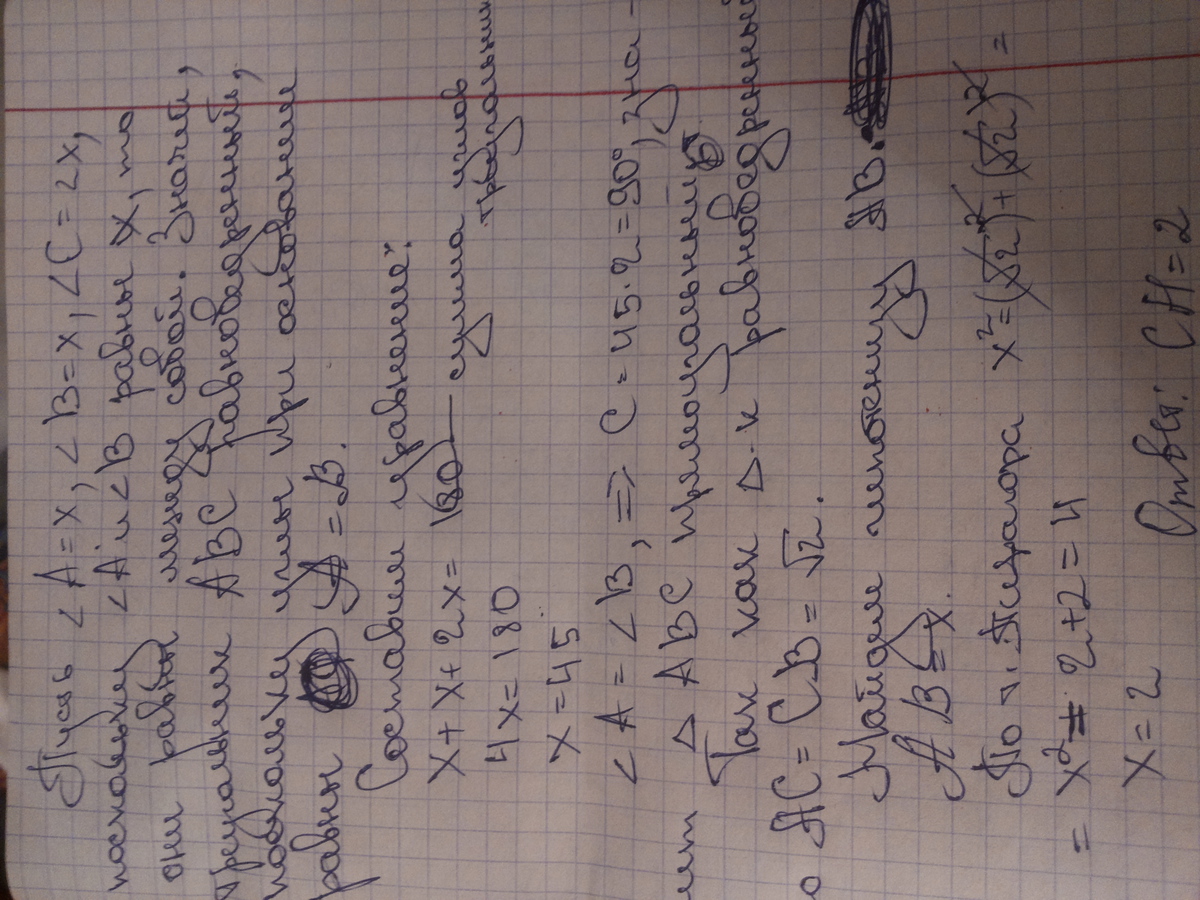 Пусть ∠A = x, ∠B = x, ∠C = 2x,
поскольку ∠A и ∠B равны x, то
они равны между собой. Значит,
треугольник ABC равнобедренный,
поскольку углы при основании
равны A = B.
Составим уравнение:
x + x + 2x = 180 — сумма углов
треугольник
4x = 180
x = 45
∠A = ∠B, ⇒ C = 45·2 = 90°, зна-
чит △ ABC прямоугольный
Так как △-к равнобедренный
то AC = CB = √2.
Найдем гипотенузу AB.
AB = x.
По т. Пифагора x² = (√2)² + (√2)² =
= x² = 2+2 = 4
x = 2
Ответ: CH = 2